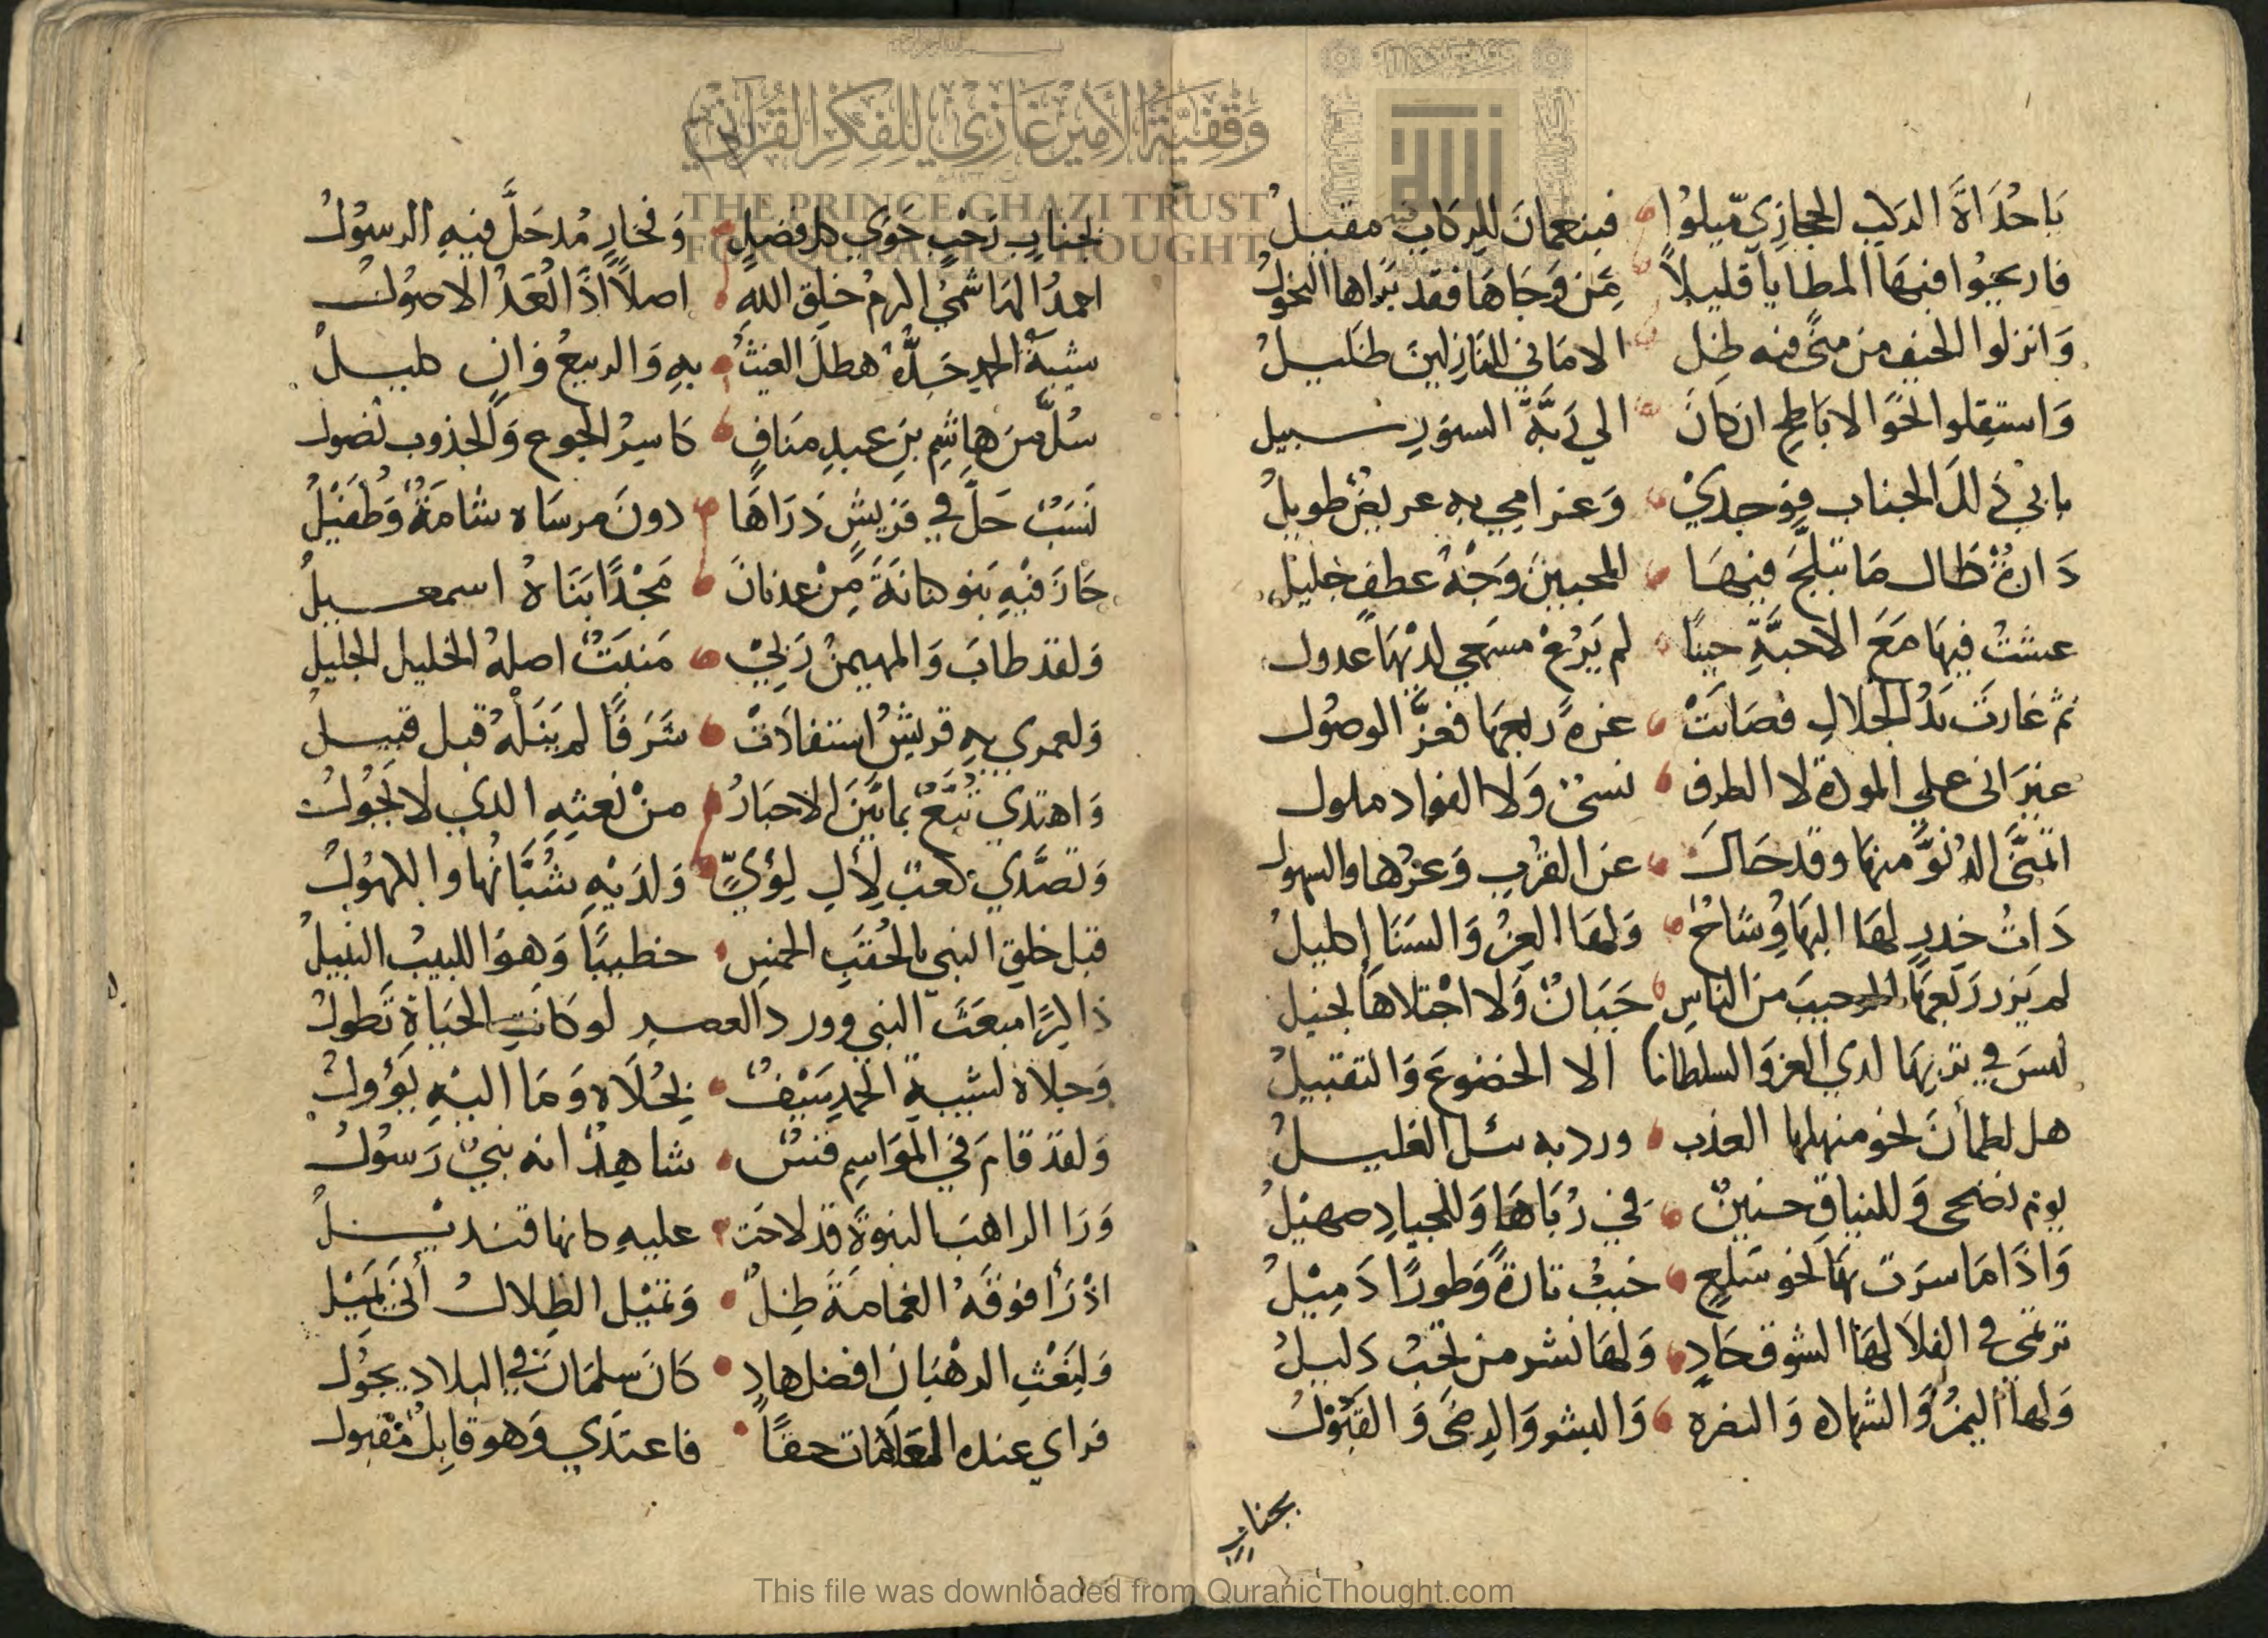 وقفية الأمير غازي للفكر القرآني
THE PRINCE GHAZI TRUST
FOR QURANIC THOUGHT
يَا حُدَاةَ الركب الحجازي ميلوا فبنعمان للركاب مقيل
فاريحوا فيها المطايا قليلاً من وجاها فقد براها النحول
وَانزلوا الخيف من منى فيه ظل الاماني للنازلين ظليل
وَاستقلوا نحو الاباطح ان كان الي ربة الستور سبيل
بابي ذلك الجناب فوجدي وَغرامي به عريض طويل
دَارة طال ما تبلج فيها للمحبين وَجه عطف جليل
عشت فيها مَعَ الاحبة حينا لم يَرُعْ مسمعي لديها عدول
ثم غارت يد الجلال فصانت عزة ربعها فعز الوصول
غير اني علي المودة لا الطرف نسيٌ وَلا الفواد ملول
اتمنى الدنو منها وقد حال عن القرب وَعرها والسهول
ذات خدر لها البها وشاح وَلها العز وَالسنا إكليل
لم يزر ربعها من الناس جَبَانٌ وَلا اجتلاها بخيل
ليس في تربها لدي العز والسلطان الا الخضوع وَالتقبيل
هل لظمآن نحو منهلها العذب ورد به يبل الغليل
يوم نضحى وَللنياق حنين في رُبَاها وَللجياد صهيل
وَاذا ما سرت بها نحو سلع خبب تارة وَطورا ذميل
ترتمي في الفلا لها الشوق حاد وَلها نشر من تحب دليل
وَلها اليمن وَالشهاده وَالنضره وَالبشر وَالرضى وَالقبول
بجناب
بجناب رَحْب حَوَي كل فضل وَفخار مُذ حَلَّ فيه الرسول
احمد الهاشمي اكرم خلق الله اصلاً اذا تعد الاصول
شيبة الحمد جَدُّهُ هطل الغيث به وَالربيع وَانٍ كليل
سُلَّ من هاشم بن عبد مناف كاسر الجوع وَالجذوب نصول
نَسَبٌ حَلَّ في قريش ذراها دون مرساه شامة وَطفيل
حَازَ فيه بنو كنانة من عدنان مَجْدًا بناهُ اسمعيل
وَلقد طاب وَالمهيمن ربي مَنبت اصله الخليل الجليل
وَلعمري به قريش استفادت شرفا لم ينله قبل قبيل
وَاهتدي تبع بما بين الاحبار من نعته الذي لا يحول
وَتصدي كعب لآل لؤي وَلديه شبانها والكهول
قبل خلق النبي بالحقب الخمس خطيبا وَهو اللبيب النبيل
ذاكرا مبعث النبي وورد العصر لو كانت الحياة تطول
وَجلاه لشيبة الحمد سيف بحلاه وَما اليه يؤول
وَلقد قام في المواسم قس شاهد انه نبي رسول
وَرَا الراهب النبوة قد لاحت عليه كانها قنديل
اذ رأا فوقه الغمامة ظل وَتميل الظلال أنى يميل
وَلبعث الرهبان افضل هاد كان سلمان في البلاد يجول
فراي عنده العلامات حقا فاعتدي وَهو قابل مقبول
This file was downloaded from QuranicThought.com